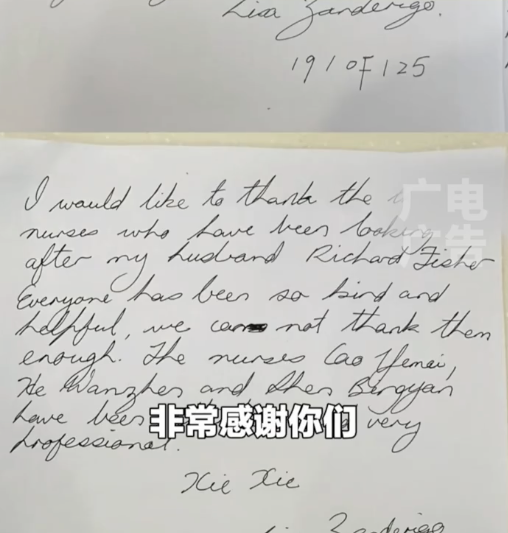 Lisa Zanderigo.
19/05/25
I would like to thank the
nurses who have been looking
after my husband Richard Fisher
Everyone has been so kind and
helpful, we can not thank them
enough. The nurses Cao Yemei,
He Wanzhen and Shen Bingyan
have been very
professional.
Xie Xie
Zanderigo
广电
广告
非常感谢你们